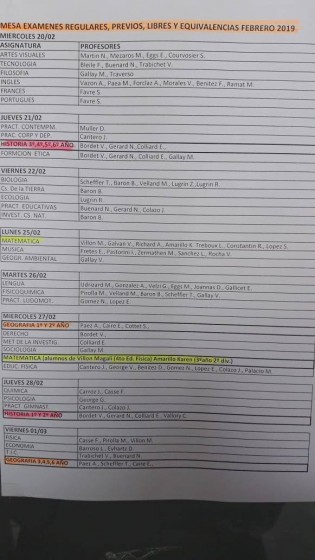 MESA EXAMENES REGULARES, PREVIOS, LIBRES Y EQUIVALENCIAS FEBRERO 2019
MIERCOLES 20/02
ASIGNATURA PROFESORES
ARTES VISUALES Martin N., Mezaros M., Eggs E., Courvosier S.
TECNOLOGIA Bleile F., Buenard N., Trabichet V.
FILOSOFIA Gallay M., Traverso
INGLES Vazon A., Paea M., Forclaz A., Morales V., Benitez F., Ramat M.
FRANCES Favre S.
PORTUGUES Favre S.
JUEVES 21/02
PRACT. CONTEMPM. Muller D.
PRAC. CORP Y DEP. Cantero J.
HISTORIA 3º,4º,5º,6º AÑO Bordet V., Gerard N., Colliard E.,
FORMCION. ETICA Bordet V., Gerard N., Colliard E., Gallay M.
VIERNES 22/02
BIOLOGIA Scheffler T., Baron B., Velland M., Lugrin Z., Lugrin R.
Cs. De la TIERRA Baron B.
ECOLOGIA Lugrin R.
PRACT. EDUCATIVAS Buenard N., Gerard N., Colazo J.
INVEST. CS. NAT. Baron B.
LUNES 25/02
MATEMATICA Villon M., Galvan V., Richard A., Amarille K. Treboux L., Constantin R., Lopez S.
MUSICA Fretes E., Zermathen M., Sanchez L., Rocha V.
GEOGR. AMBIENTAL Gallay V.
MARTES 26/02
LENGUA Udrizard M., Gonzalez A., Eggs M., Joannas D., Gallicet E.
FISICOQUIMICA Pirolla M., Velland M., Baron B., Scheffler T., Gallay V.
PRACT. LUDOMOT. Gomez N., Lopez E.
MIERCOLES 27/02
GEOGRAFIA 1º Y 2º AÑO Paez A., Caire E., Comet S.,
DERECHO Bordet V.,
MET DE LA INVESTIG. Colliard E.
SOCIOLOGIA Gallay M.
MATEMATICA (alumnos de Villon Magali (4to Ed. Fisica) Amarilla Karen (3ºaño 2º div.)
EDUC. FISICA Cantero J., George V., Benitez D., Gomez N., Lopez E., Colazo J., Palacio M.
JUEVES 28/02
QUIMICA Casse F.
PSICOLOGIA George G.
PRACT. GIMNAST. Cantero J., Colazo J.
HISTORIA 1º Y 2º AÑO Bordet V., Gerard N., Colliard E., Vallory C.
VIERNES 01/03
FISICA Casse F., Pirolla M., Villon M.
ECONOMIA Barroso L., Eyhartz D.
T.I.C. Trabichet V., Buenard N.
GEOGRAFIA 3,4,5,6 AÑO Paez A., Scheffler T., Caire E.,